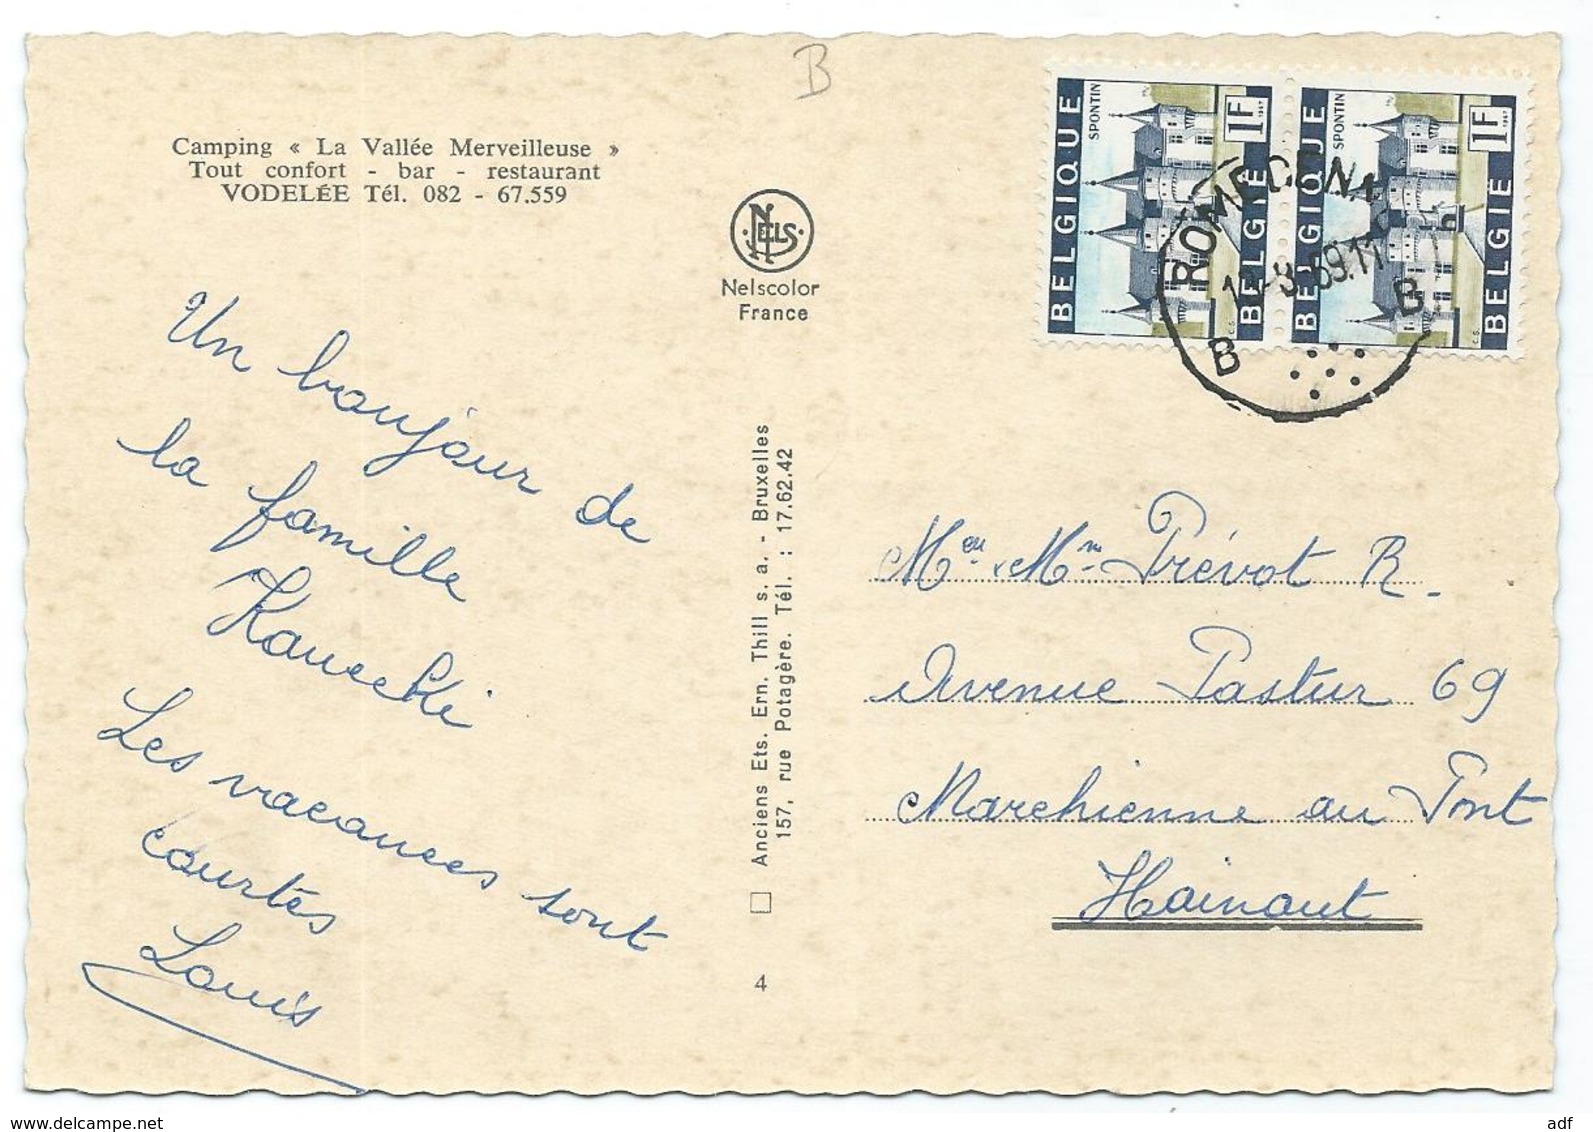 B
Camping « La Vallée Merveilleuse »
Tout confort - bar - restaurant
VODELÉE Tél. 082 - 67.559
Un bonjour de
la famille
Kawecki
Les vacances sont
courtes
Louis
NELS
Nelscolor
France
Anciens Ets. Ern. Thill s. a. - Bruxelles
157, rue Potagère. Tél. : 17.62.42
4
BELGIQUE
SPONTIN
1F
1967
BELGIE
C.S.
BELGIQUE
SPONTIN
1F
1967
BELGIE
C.S.
ROMEDENNE
B B
Mr et Mme Prévot R.
Avenue Pastur 69
Marchienne au Pont
Hainaut
www.delcampe.net
adf